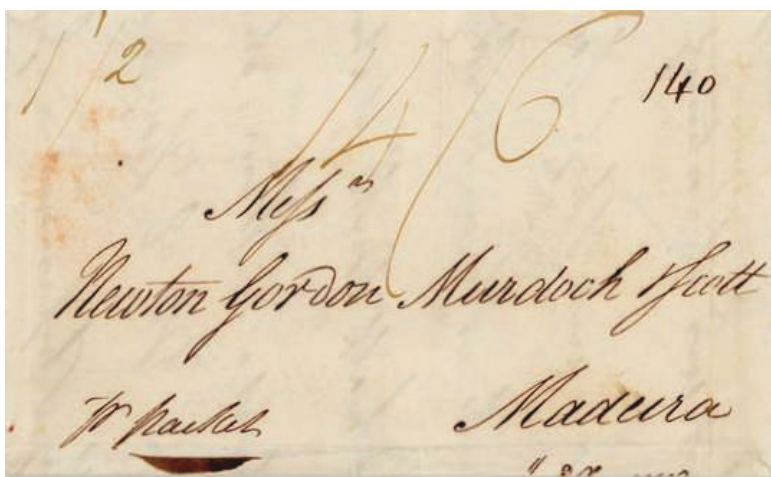 1/2 4/6 140
Mess rs
Newton Gordon Murdoch & Scott
Madeira
pr packet